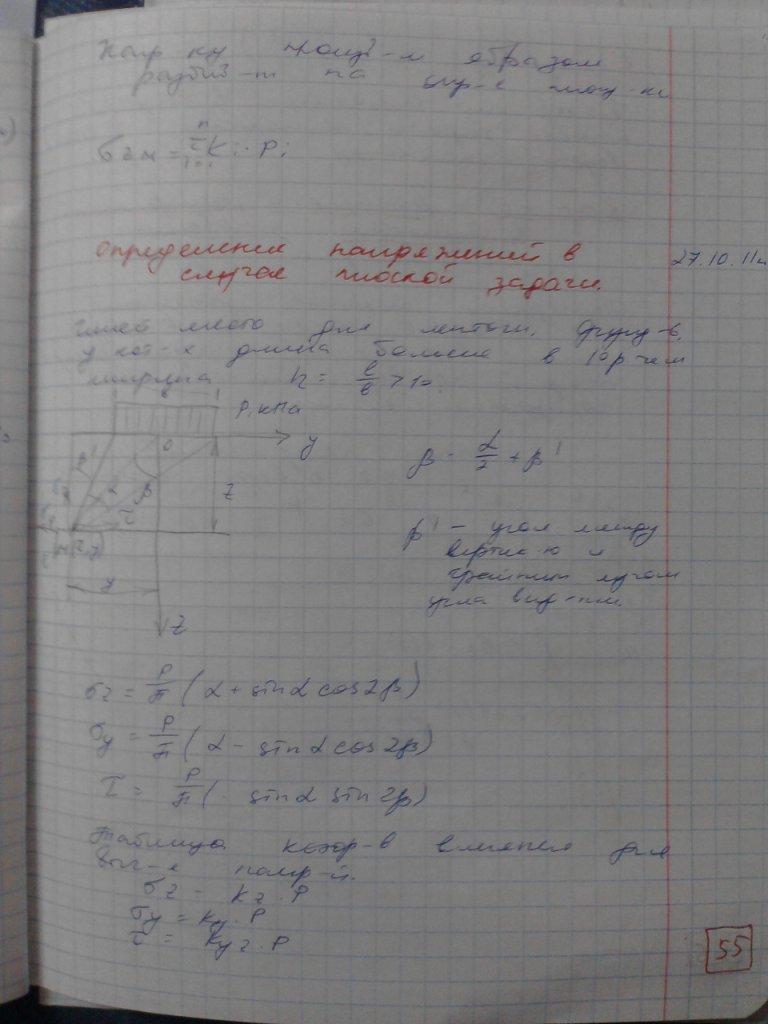 образом
на
σzм = Σ Ki · Pi
n
i=1
Определение напряжений в
случае плоской задачи.
27.10.11
место для ленточн. фунд-в,
у кот-х длина больше в 10 р чем
ширина n = l/b > 10
b
P, кПа
O
y
β'
α
β
z
τ
M(z, y)
y
z
β = α/2 + β'
β' – угол между
вертик-ю и
крайним лучом
угла вид-ти.
σz = P/π (α + sin α cos 2β)
σy = P/π (α - sin α cos 2β)
τ = P/π ( · sin α sin 2β)
Таблица коэф-в влияния для
напр-й.
σz = kz · P
σy = ky · P
τ = kyz · P
55